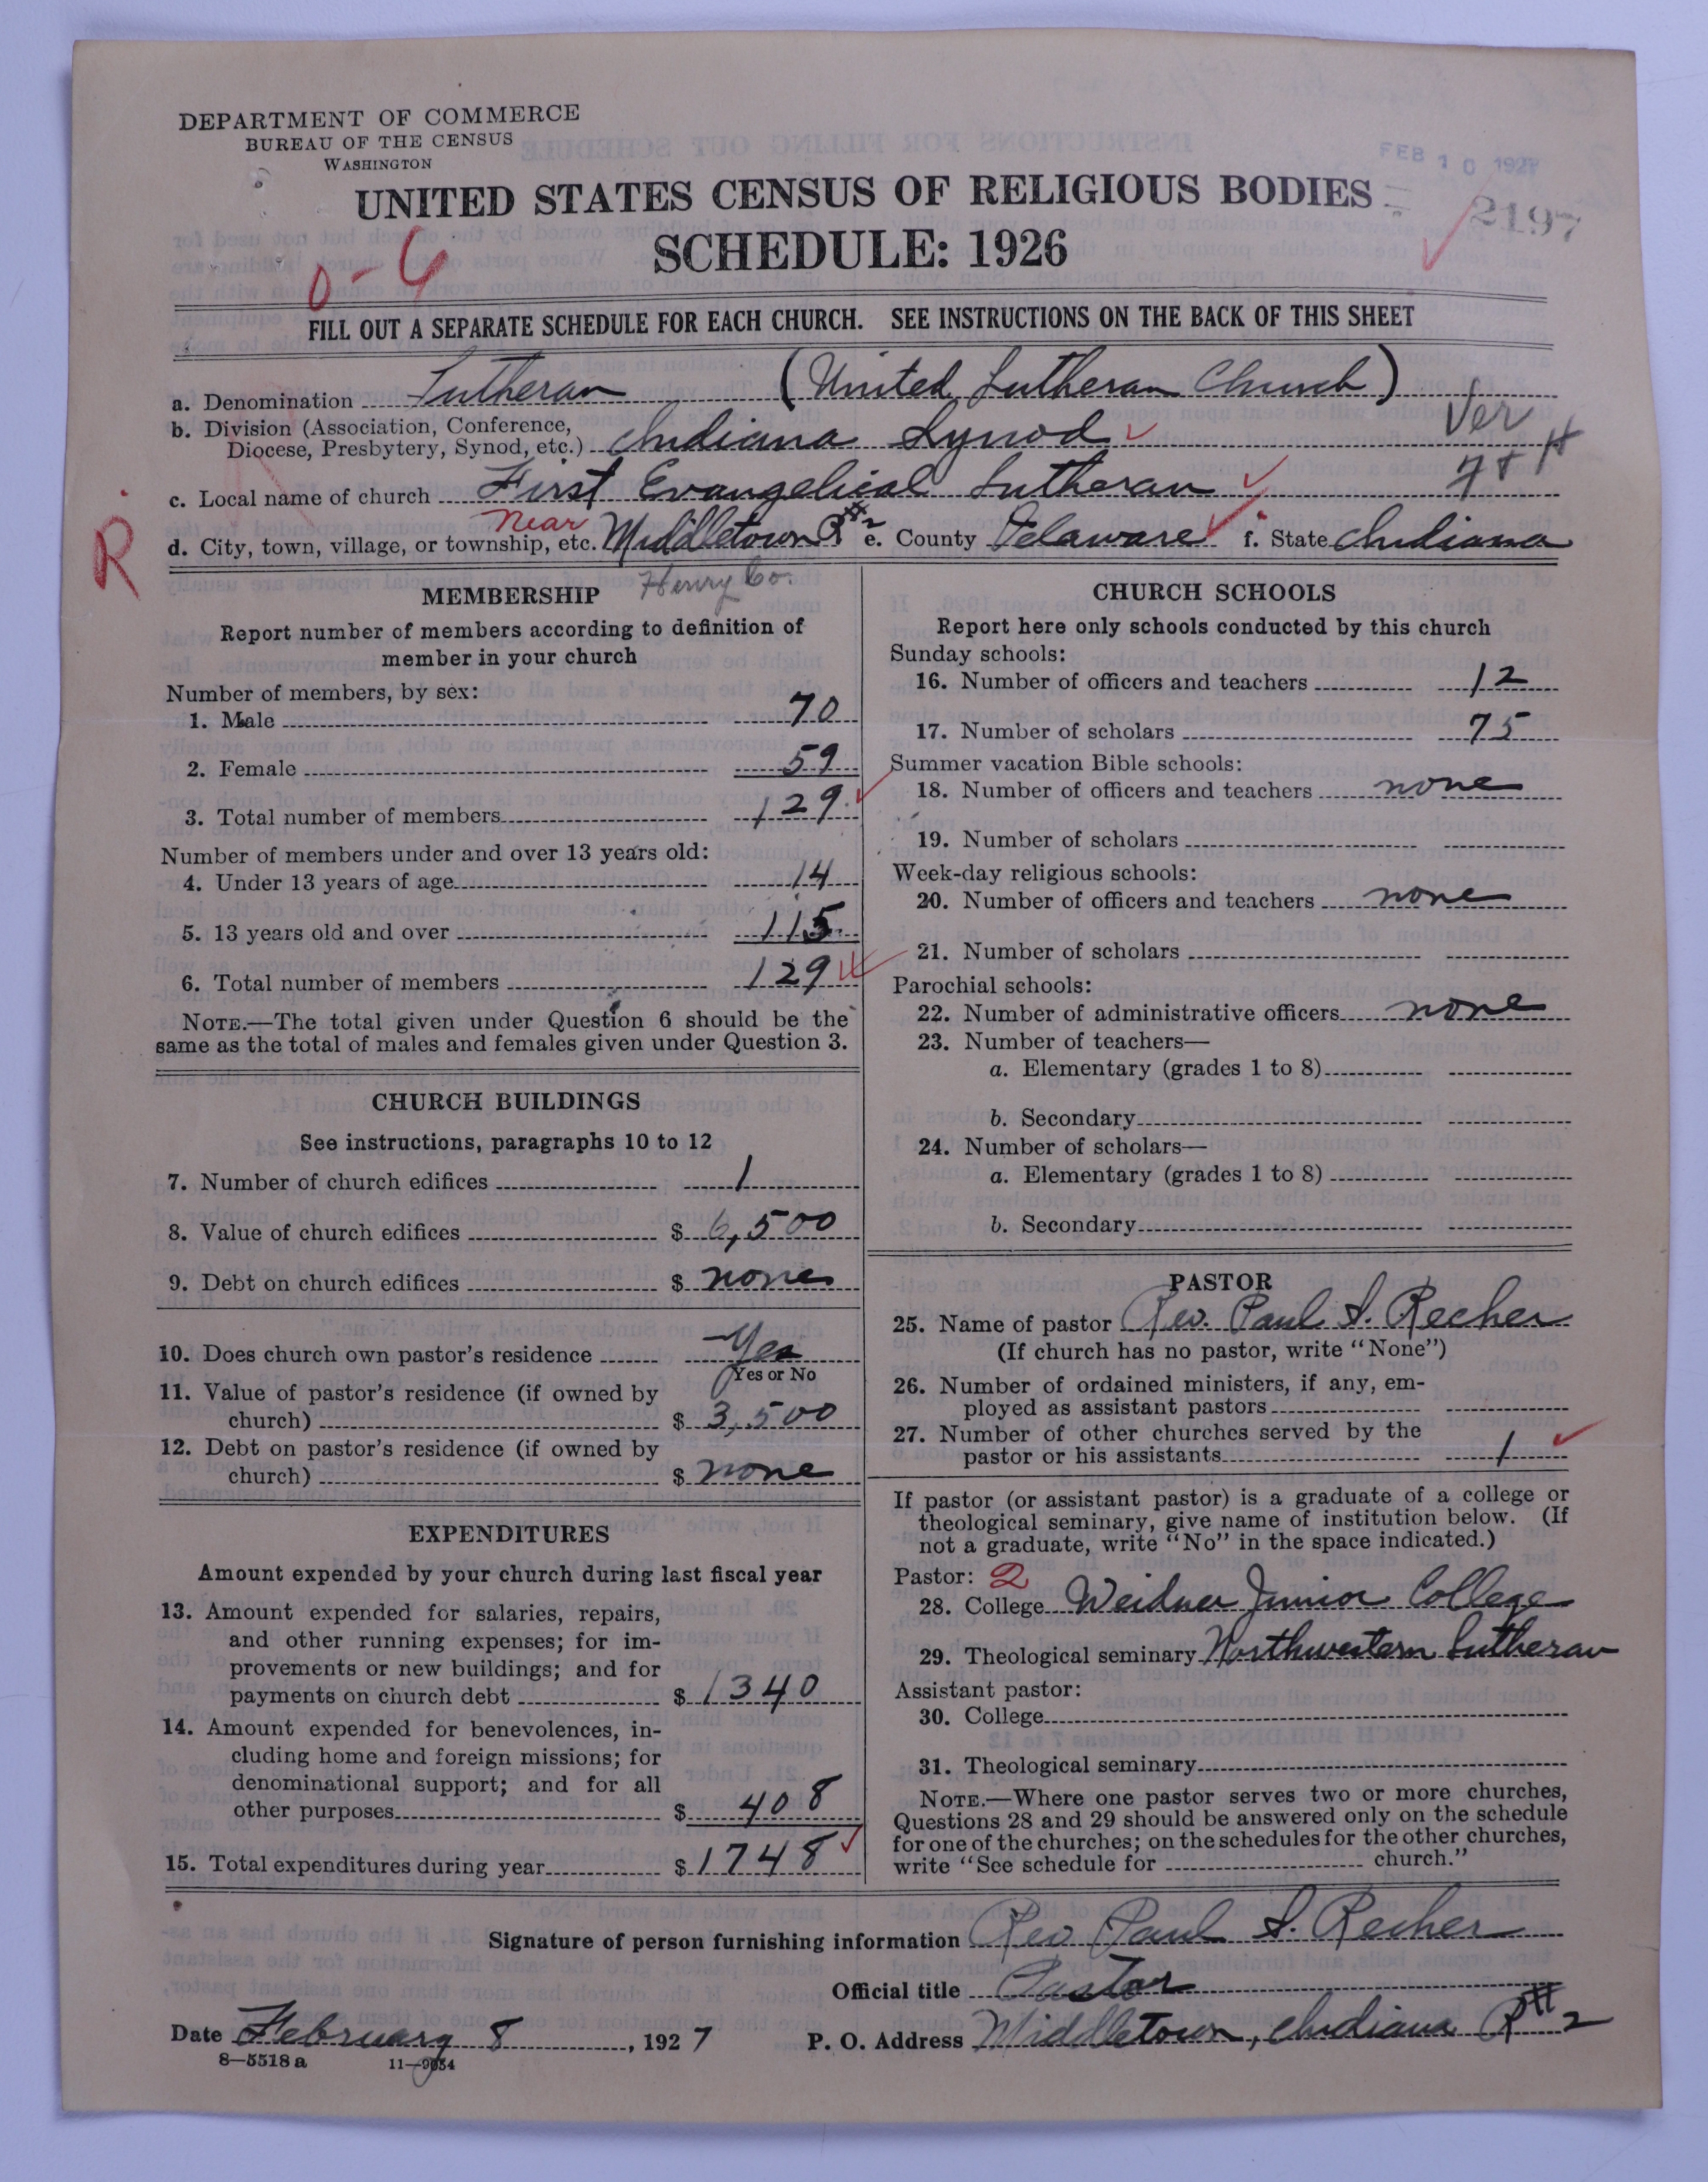 DEPARTMENT OF COMMERCE
BUREAU OF THE CENSUS
WASHINGTON
FEB 10 1927
UNITED STATES CENSUS OF RELIGIOUS BODIES
2197
SCHEDULE: 1926
0-6
FILL OUT A SEPARATE SCHEDULE FOR EACH CHURCH. SEE INSTRUCTIONS ON THE BACK OF THIS SHEET
a. Denomination Lutheran (United Lutheran Church)
b. Division (Association, Conference,
Diocese, Presbytery, Synod, etc.) Indiana Synod
Ver
c. Local name of church First Evangelical Lutheran
R
near
d. City, town, village, or township, etc. Middletown R#2 e. County Delaware f. State Indiana
Henry Co.
MEMBERSHIP
Report number of members according to definition of
member in your church
Number of members, by sex:
1. Male 70
2. Female 59
3. Total number of members 129
Number of members under and over 13 years old:
4. Under 13 years of age 14
5. 13 years old and over 115
6. Total number of members 129
NOTE.—The total given under Question 6 should be the
same as the total of males and females given under Question 3.
CHURCH BUILDINGS
See instructions, paragraphs 10 to 12
7. Number of church edifices 1
8. Value of church edifices $ 6,500
9. Debt on church edifices $ none
10. Does church own pastor's residence Yes
Yes or No
11. Value of pastor's residence (if owned by
church) $ 3,500
12. Debt on pastor's residence (if owned by
church) $ none
EXPENDITURES
Amount expended by your church during last fiscal year
13. Amount expended for salaries, repairs,
and other running expenses; for im-
provements or new buildings; and for
payments on church debt $ 1340
14. Amount expended for benevolences, in-
cluding home and foreign missions; for
denominational support; and for all
other purposes $ 408
15. Total expenditures during year $ 1748
CHURCH SCHOOLS
Report here only schools conducted by this church
Sunday schools:
16. Number of officers and teachers 12
17. Number of scholars 75
Summer vacation Bible schools:
18. Number of officers and teachers none
19. Number of scholars
Week-day religious schools:
20. Number of officers and teachers none
21. Number of scholars
Parochial schools:
22. Number of administrative officers none
23. Number of teachers—
a. Elementary (grades 1 to 8)
b. Secondary
24. Number of scholars—
a. Elementary (grades 1 to 8)
b. Secondary
PASTOR
25. Name of pastor Rev. Paul S. Recher
(If church has no pastor, write "None")
26. Number of ordained ministers, if any, em-
ployed as assistant pastors
27. Number of other churches served by the
pastor or his assistants 1
If pastor (or assistant pastor) is a graduate of a college or
theological seminary, give name of institution below. (If
not a graduate, write "No" in the space indicated.)
Pastor: 2
28. College Weidner Junior College
29. Theological seminary Northwestern Lutheran
Assistant pastor:
30. College
31. Theological seminary
NOTE.—Where one pastor serves two or more churches,
Questions 28 and 29 should be answered only on the schedule
for one of the churches; on the schedules for the other churches,
write "See schedule for church."
Signature of person furnishing information Rev Paul S. Recher
Official title Pastor
Date February 8, 1927 P. O. Address Middletown, Indiana R#2
8—5518a 11—9054